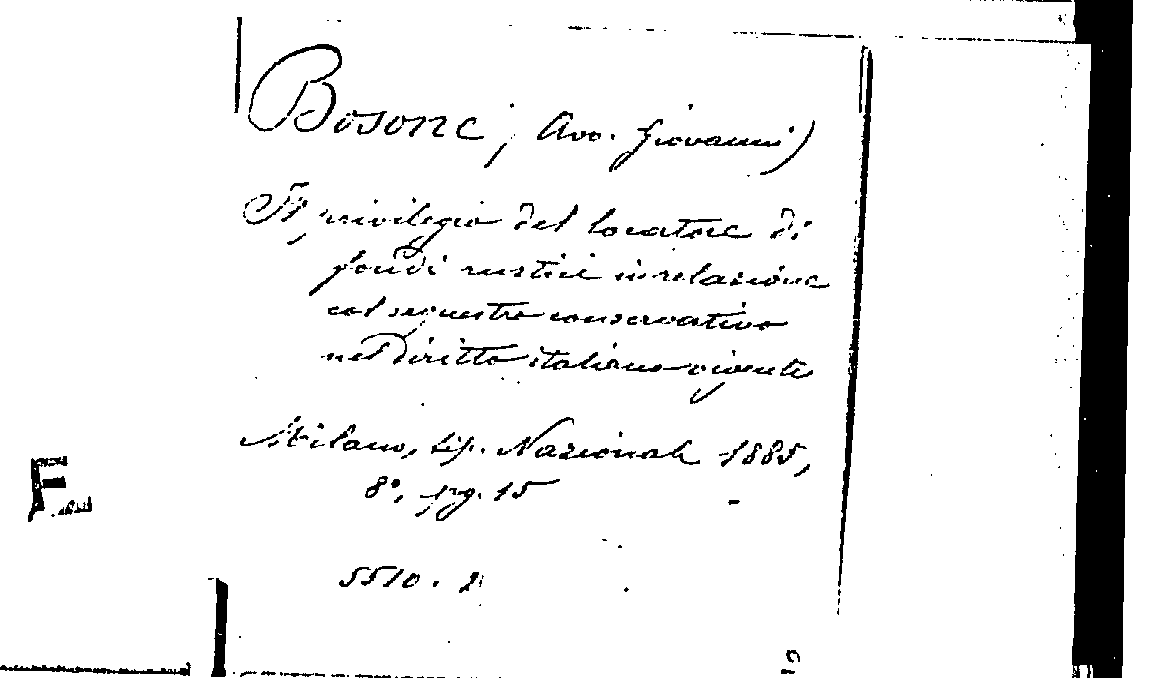 Bosone, Avv. Giovanni)
Il privilegio del locatore di
fondi rustici in relazione
col sequestro conservativo
nel Diritto italiano vigente
Milano, tip. Nazionale 1885,
8°, pg. 15
5510. 2